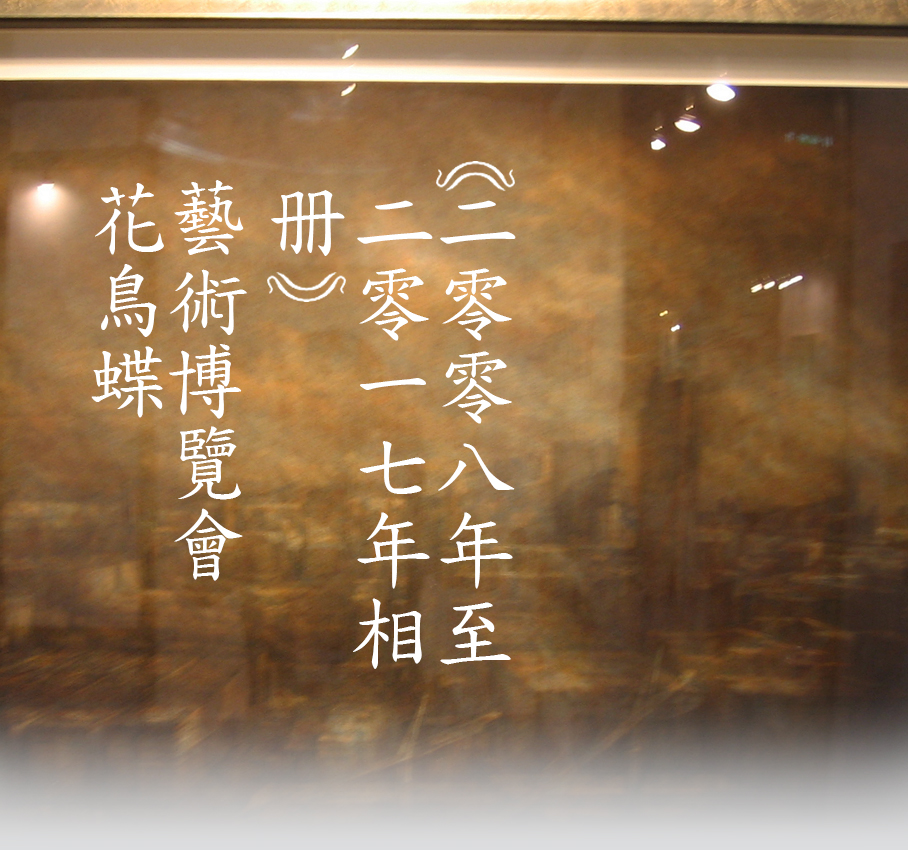 《二零零八年至
二零一七年相
册》
藝術博覽會
花鳥蝶